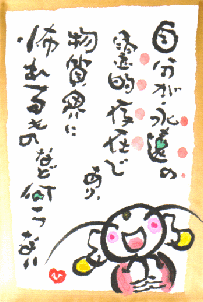 自分が永遠の
霊的存在で
あり、
物質界に
怖れるもの
など何一つない